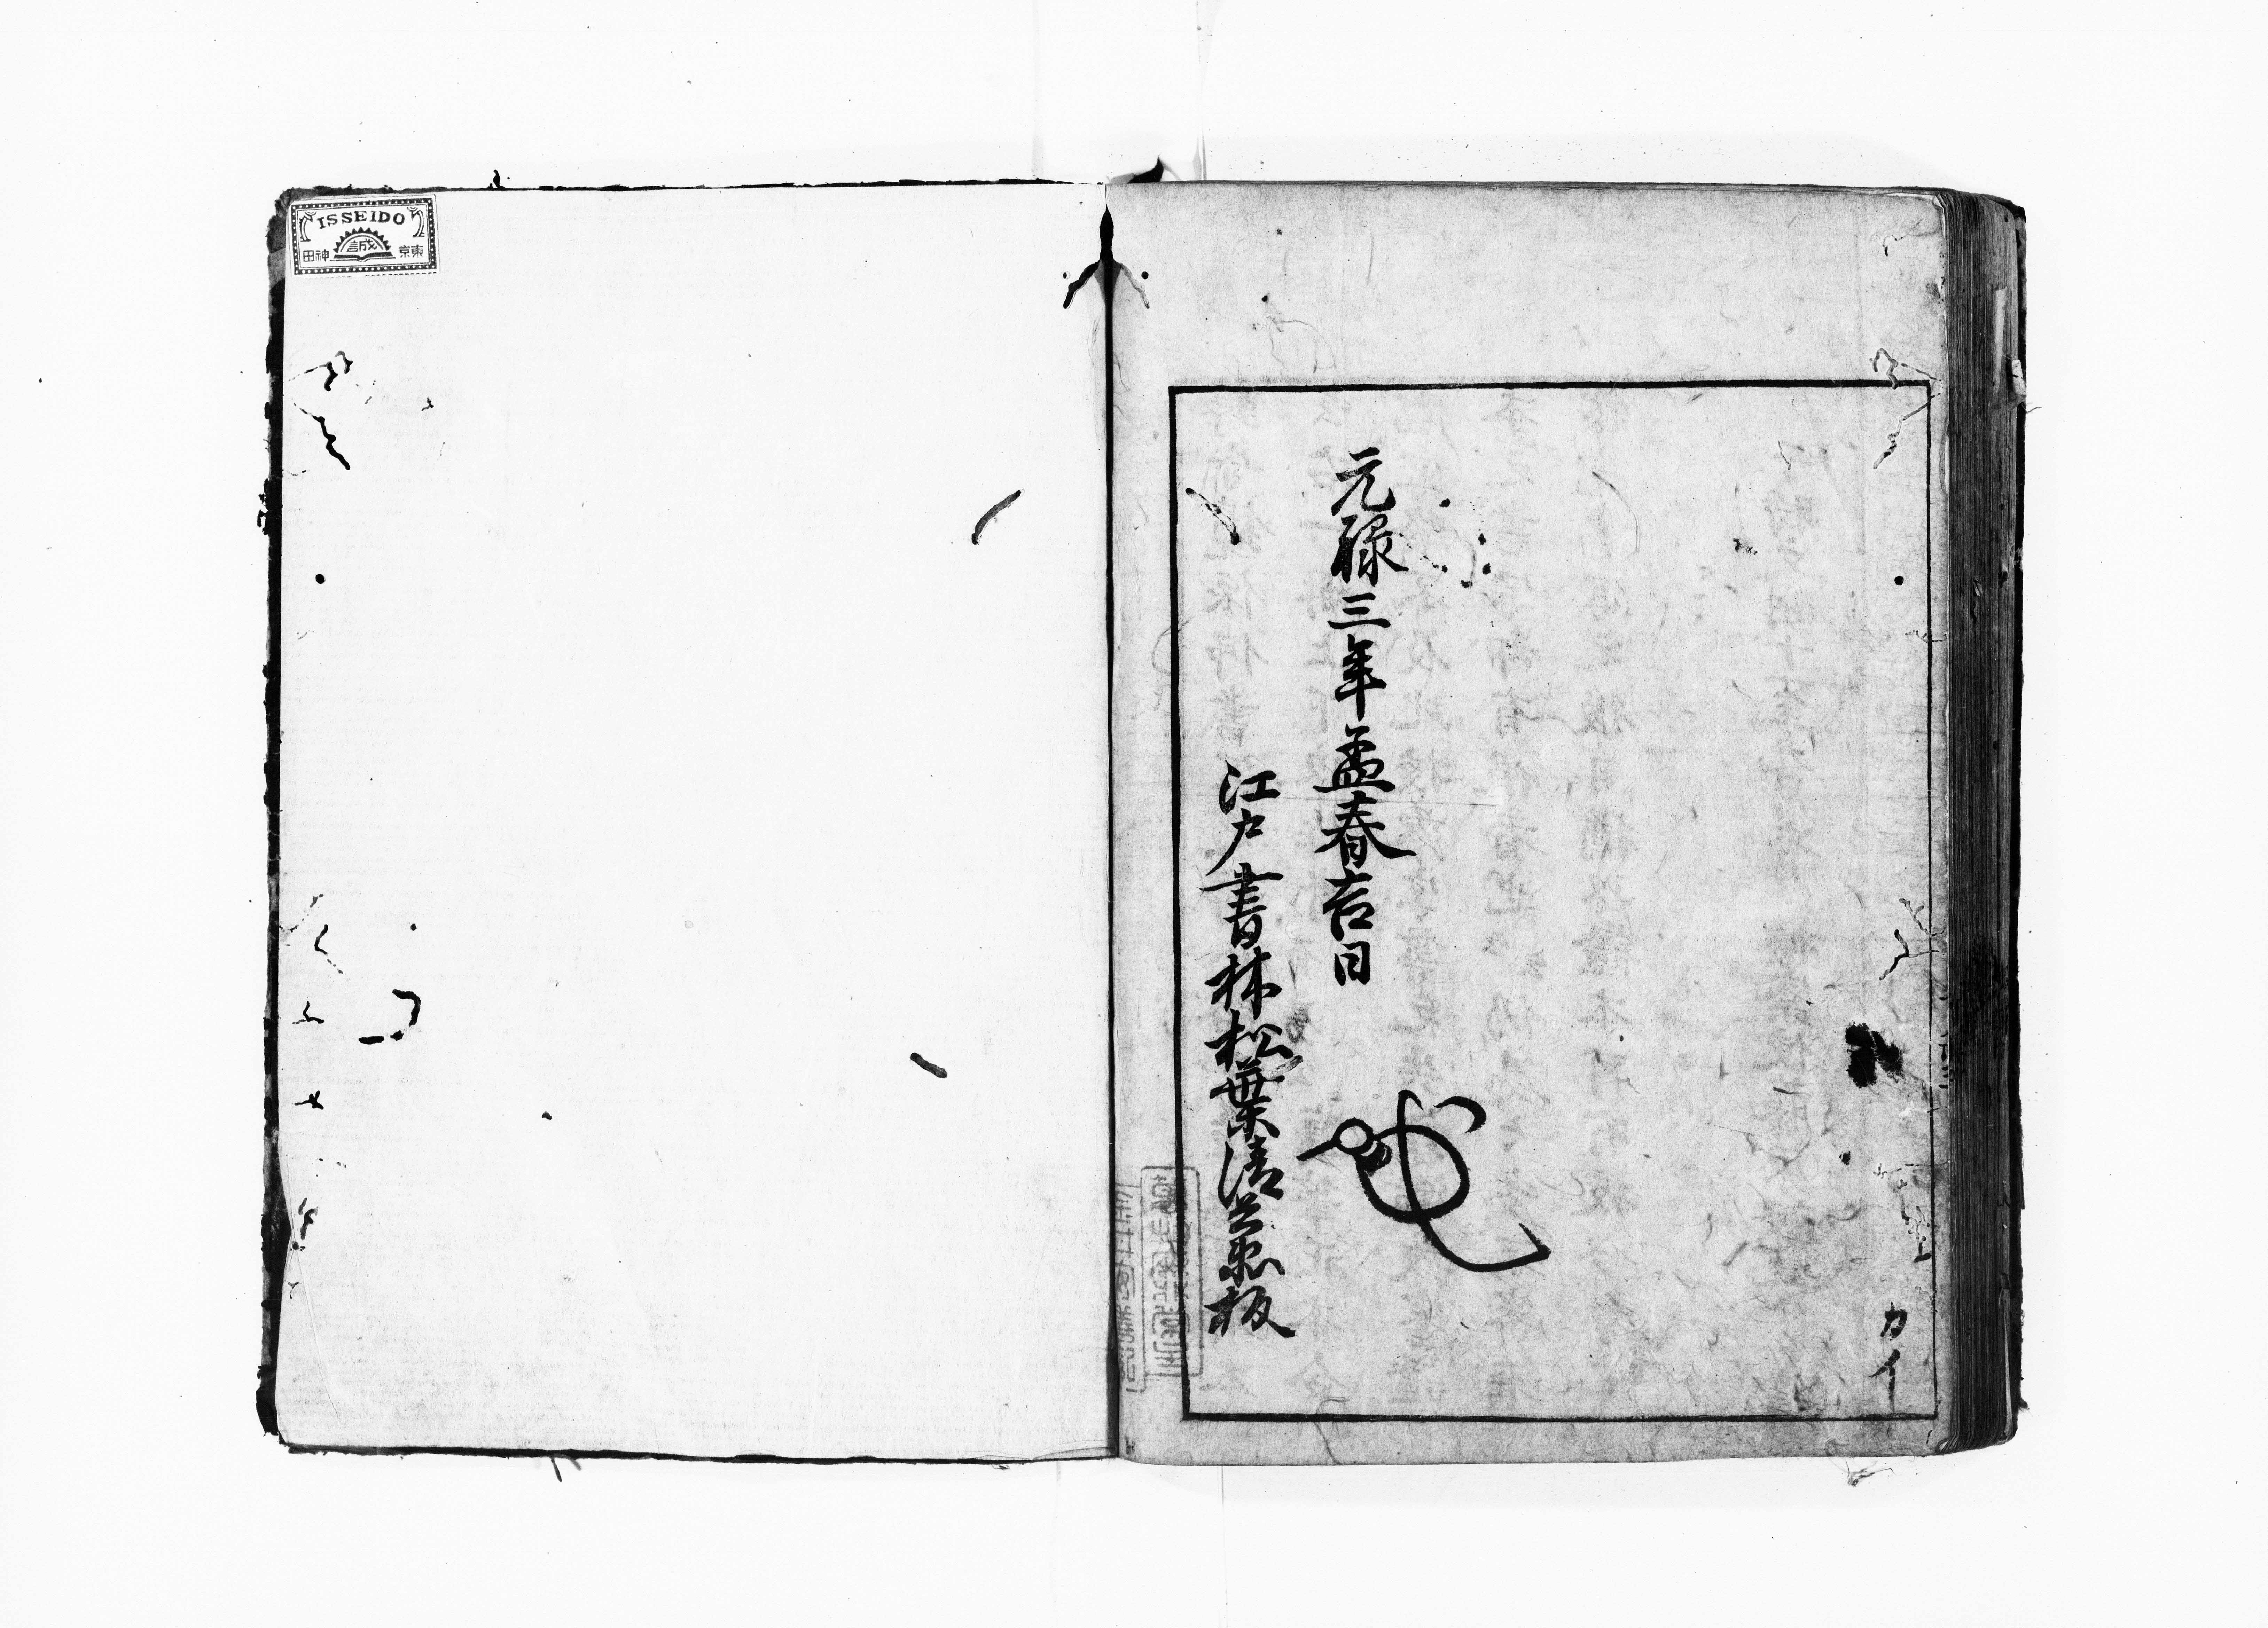 元禄三年孟春吉日
江戸書林松葉清兵衛板
カイ
ISSEIDO
誠
東京
神田